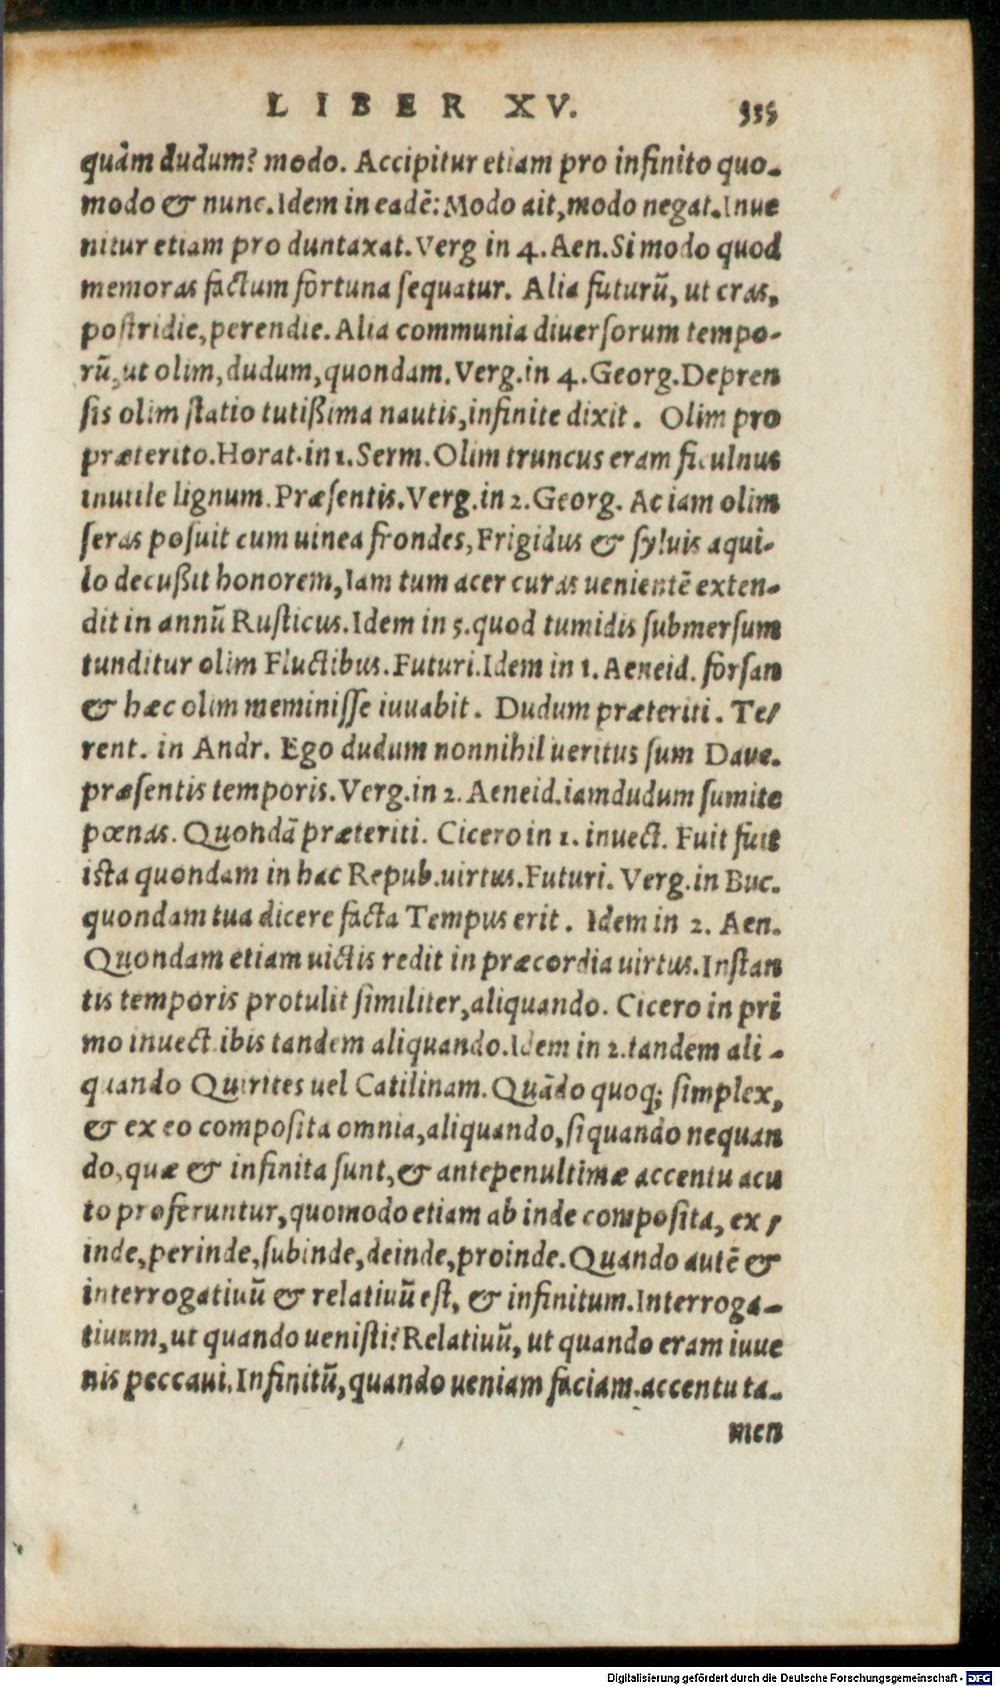 LIBER XV. 535
quàm dudum? modo. Accipitur etiam pro infinito quo-
modo & nunc. Idem in eadē: Modo ait, modo negat. Inue
nitur etiam pro duntaxat. Verg in 4. Aen. Si modo quod
memoras factum fortuna sequatur. Alia futurū, ut cras,
postridie, perendie. Alia communia diuersorum tempo-
rū, ut olim, dudum, quondam. Verg. in 4. Georg. Depren
sis olim statio tutißima nautis, infinite dixit. Olim pro
præterito. Horat. in 1. Serm. Olim truncus eram ficulnus
inutile lignum. Præsentis. Verg. in 2. Georg. Ac iam olim
seras posuit cum uinea frondes, Frigidus & syluis aqui-
lo decußit honorem, Iam tum acer curas uenientē exten-
dit in annū Rusticus. Idem in 5. quod tumidis submersum
tunditur olim Fluctibus. Futuri. Idem in 1. Aeneid. forsan
& hæc olim meminisse iuuabit. Dudum præteriti. Te-
rent. in Andr. Ego dudum nonnihil ueritus sum Daue.
præsentis temporis. Verg. in 2. Aeneid. iamdudum sumite
pœnas. Quondā præteriti. Cicero in 1. inuect. Fuit fuit
ista quondam in hac Repub. uirtus. Futuri. Verg. in Buc.
quondam tua dicere facta Tempus erit. Idem in 2. Aen.
Quondam etiam uictis redit in præcordia uirtus. Instan
tis temporis protulit similiter, aliquando. Cicero in pri
mo inuect ibis tandem aliquando. Idem in 2. tandem ali-
quando Quirites uel Catilinam. Quādo quoq; simplex,
& ex eo composita omnia, aliquando, siquando nequan
do, quæ & infinita sunt, & antepenultimæ accentu acu
to proferuntur, quomodo etiam ab inde composita, ex-
inde, perinde, subinde, deinde, proinde. Quando autē &
interrogatiuū & relatiuū est, & infinitum. Interroga-
tiuum, ut quando uenisti? Relatiuū, ut quando eram iuue
nis peccaui. Infinitū, quando ueniam faciam. accentu ta-
men
Digitalisierung gefördert durch die Deutsche Forschungsgemeinschaft - DFG